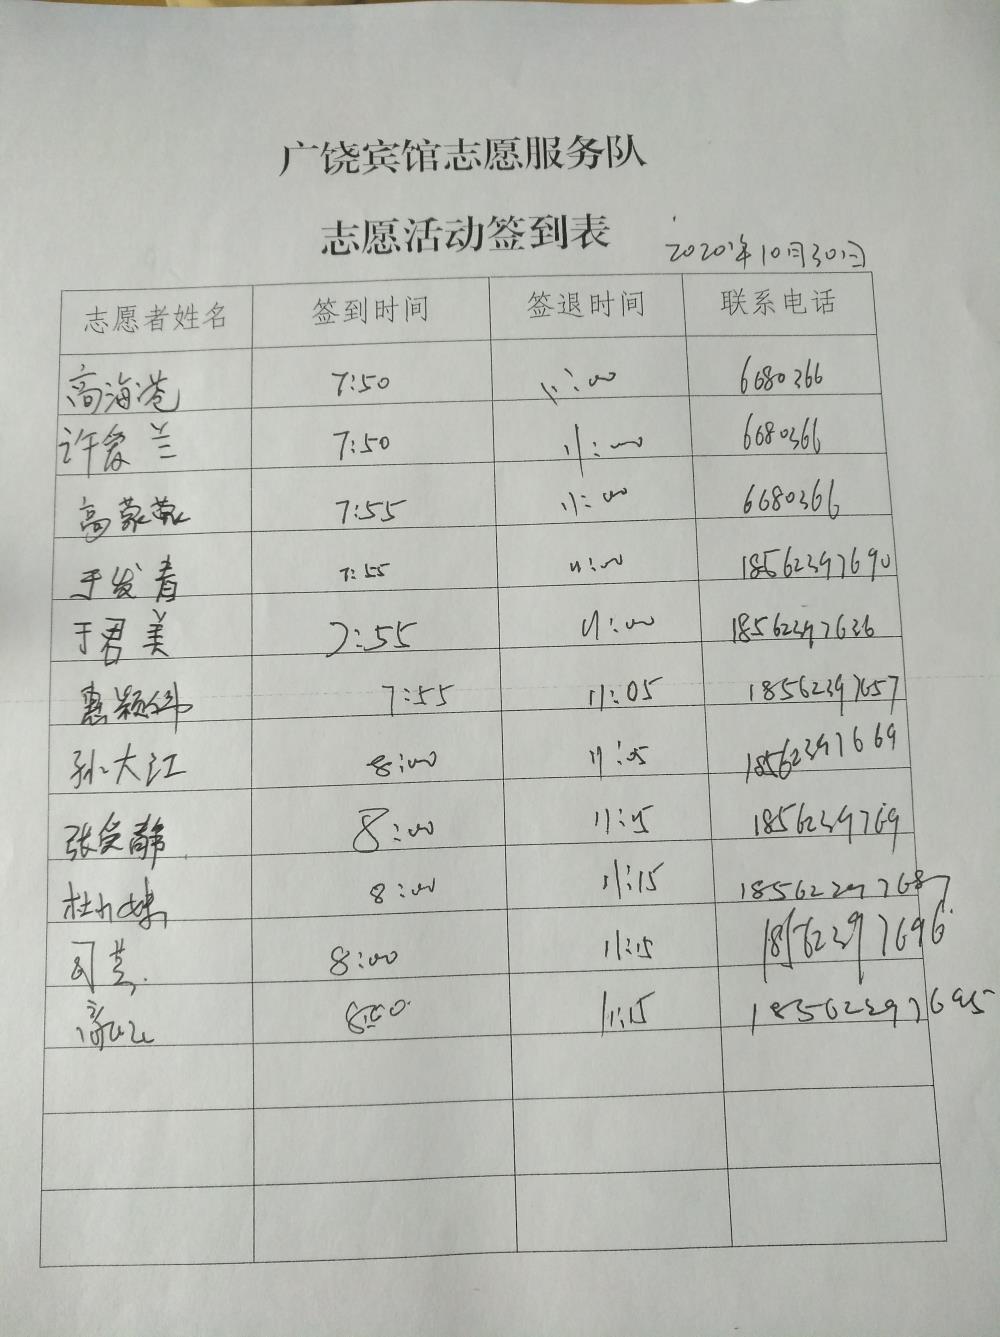 广饶宾馆志愿服务队
志愿活动签到表
2020年10月30日
志愿者姓名 签到时间 签退时间 联系电话
高海港 7:50 11:00 6680366
许爱兰 7:50 11:00 6680366
高蒙蒙 7:55 11:00 6680366
于发青 7:55 11:00 18562397690
于君美 7:55 11:00 18562397636
惠颖 7:55 11:05 18562397657
孙大江 8:00 11:05 18562397669
张爱静 8:00 11:15 1856239769
杜 8:00 11:15 18562397687
司 8:00 11:15 18562397696
高 8:00 11:15 18562397695